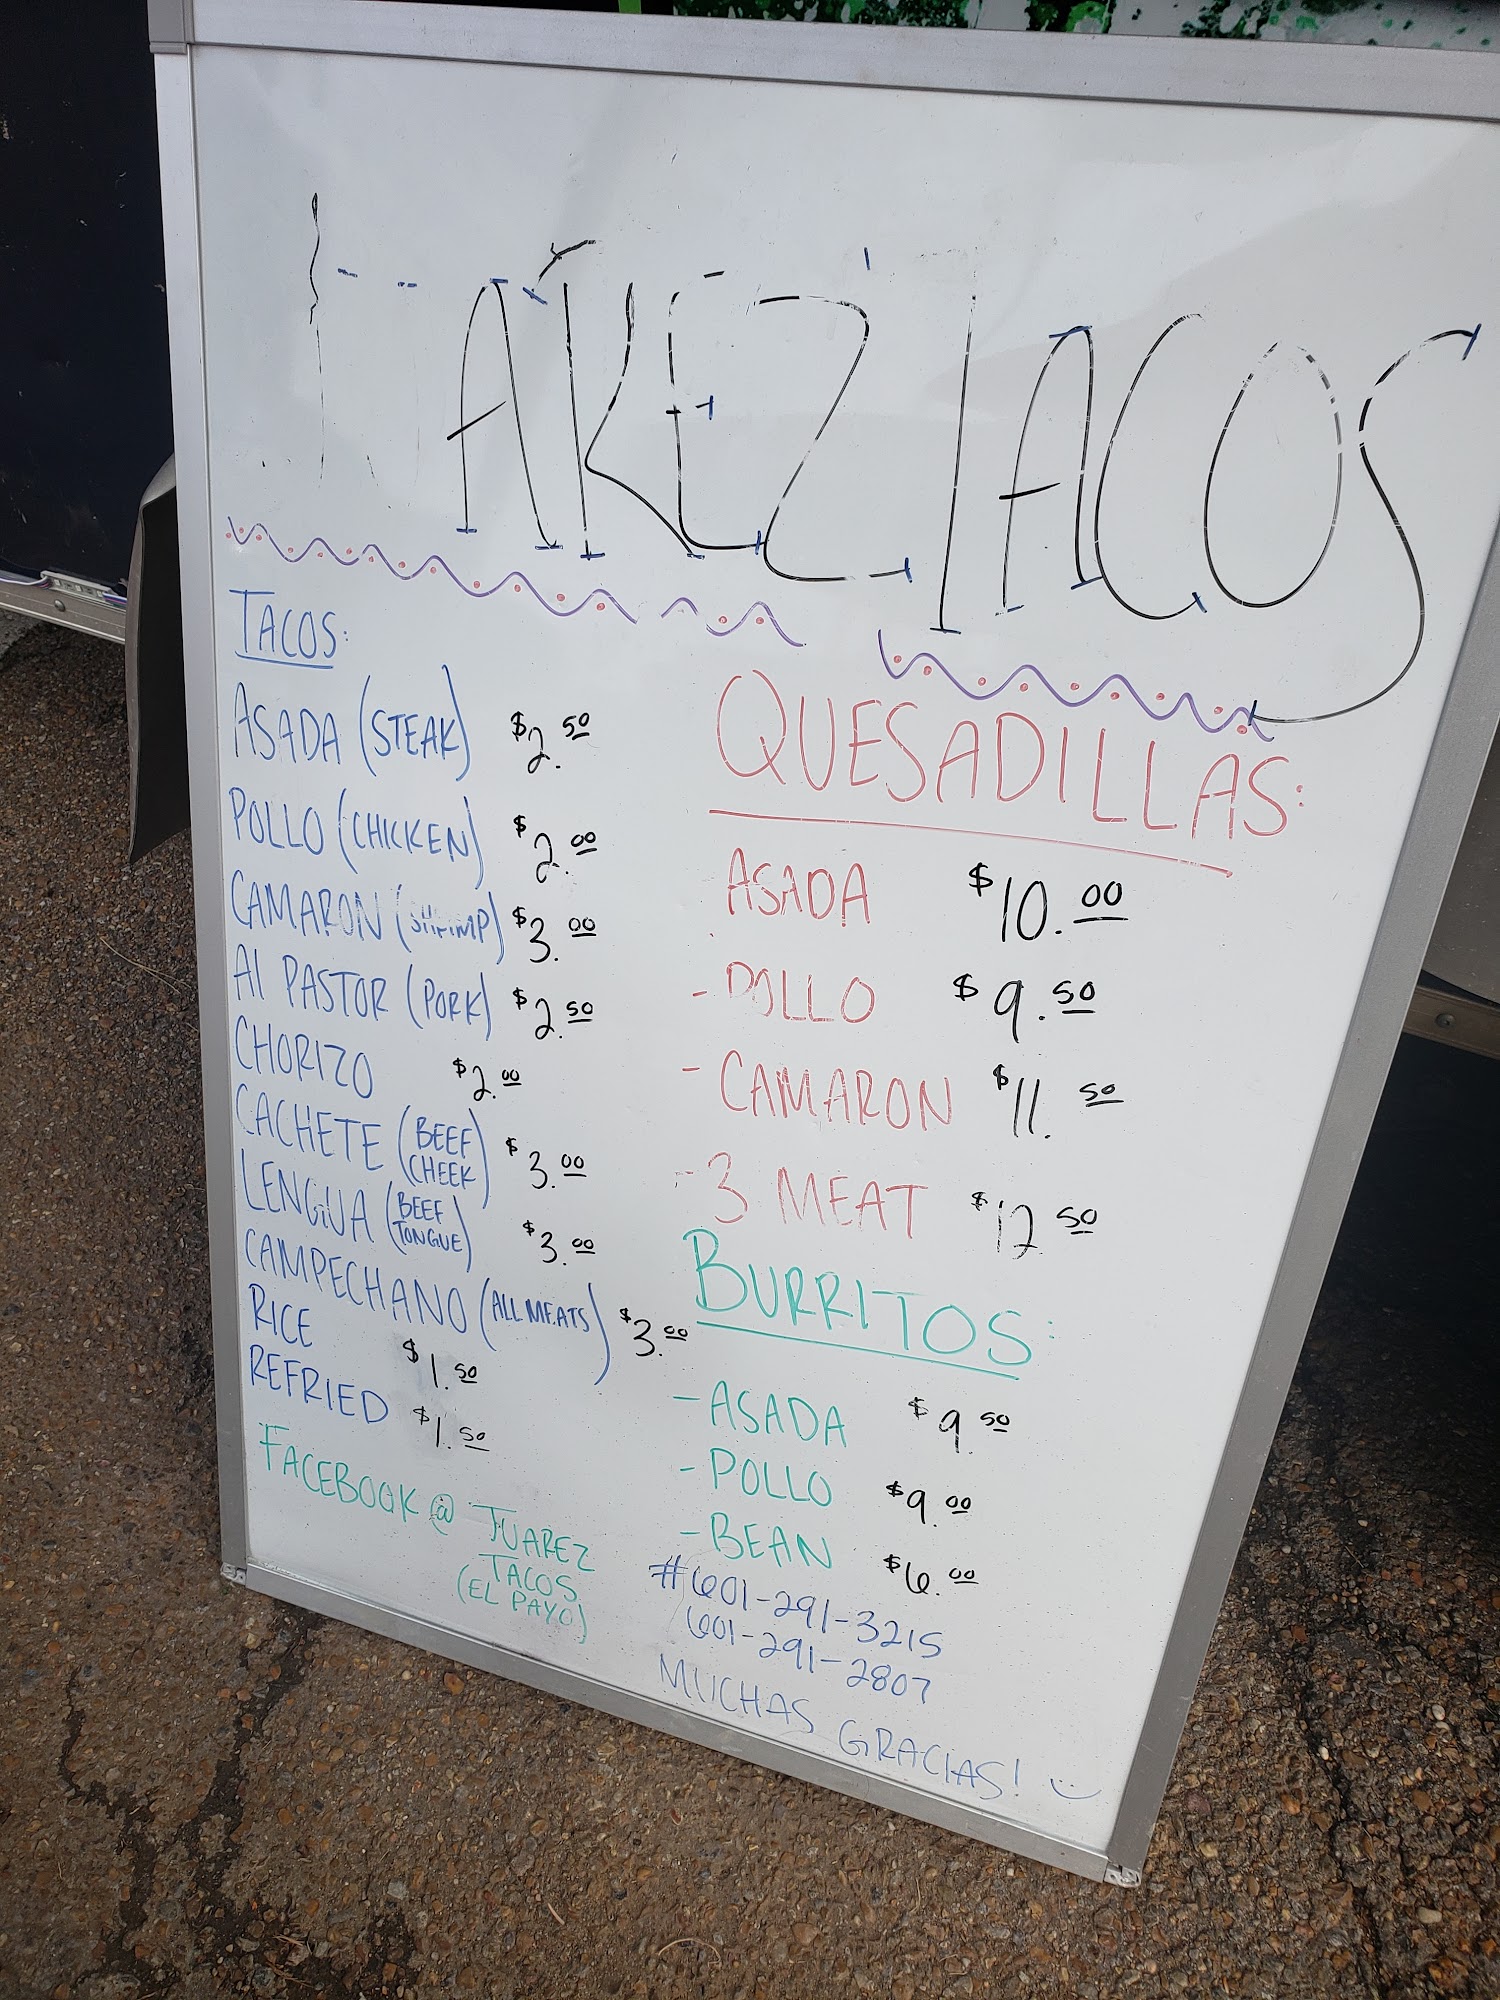 AREZ TACOS
TACOS:
ASADA (STEAK) $2.50
POLLO (CHICKEN) $2.00
CAMARON (SHRIMP) $3.00
Al PASTOR (PORK) $2.50
CHORIZO $2.00
CACHETE (BEEF CHEEK) $3.00
LENGUA (BEEF TONGUE) $3.00
CAMPECHANO (ALL MEATS) $3.00
RICE $1.50
REFRIED $1.50
FACEBOOK @ JUAREZ
TACOS
(EL PAYO)
QUESADILLAS:
ASADA $10.00
- POLLO $9.50
- CAMARON $11.50
- 3 MEAT $12.50
BURRITOS:
- ASADA $9.50
- POLLO $9.00
- BEAN $6.00
#601-291-3215
601-291-2807
MUCHAS GRACIAS!